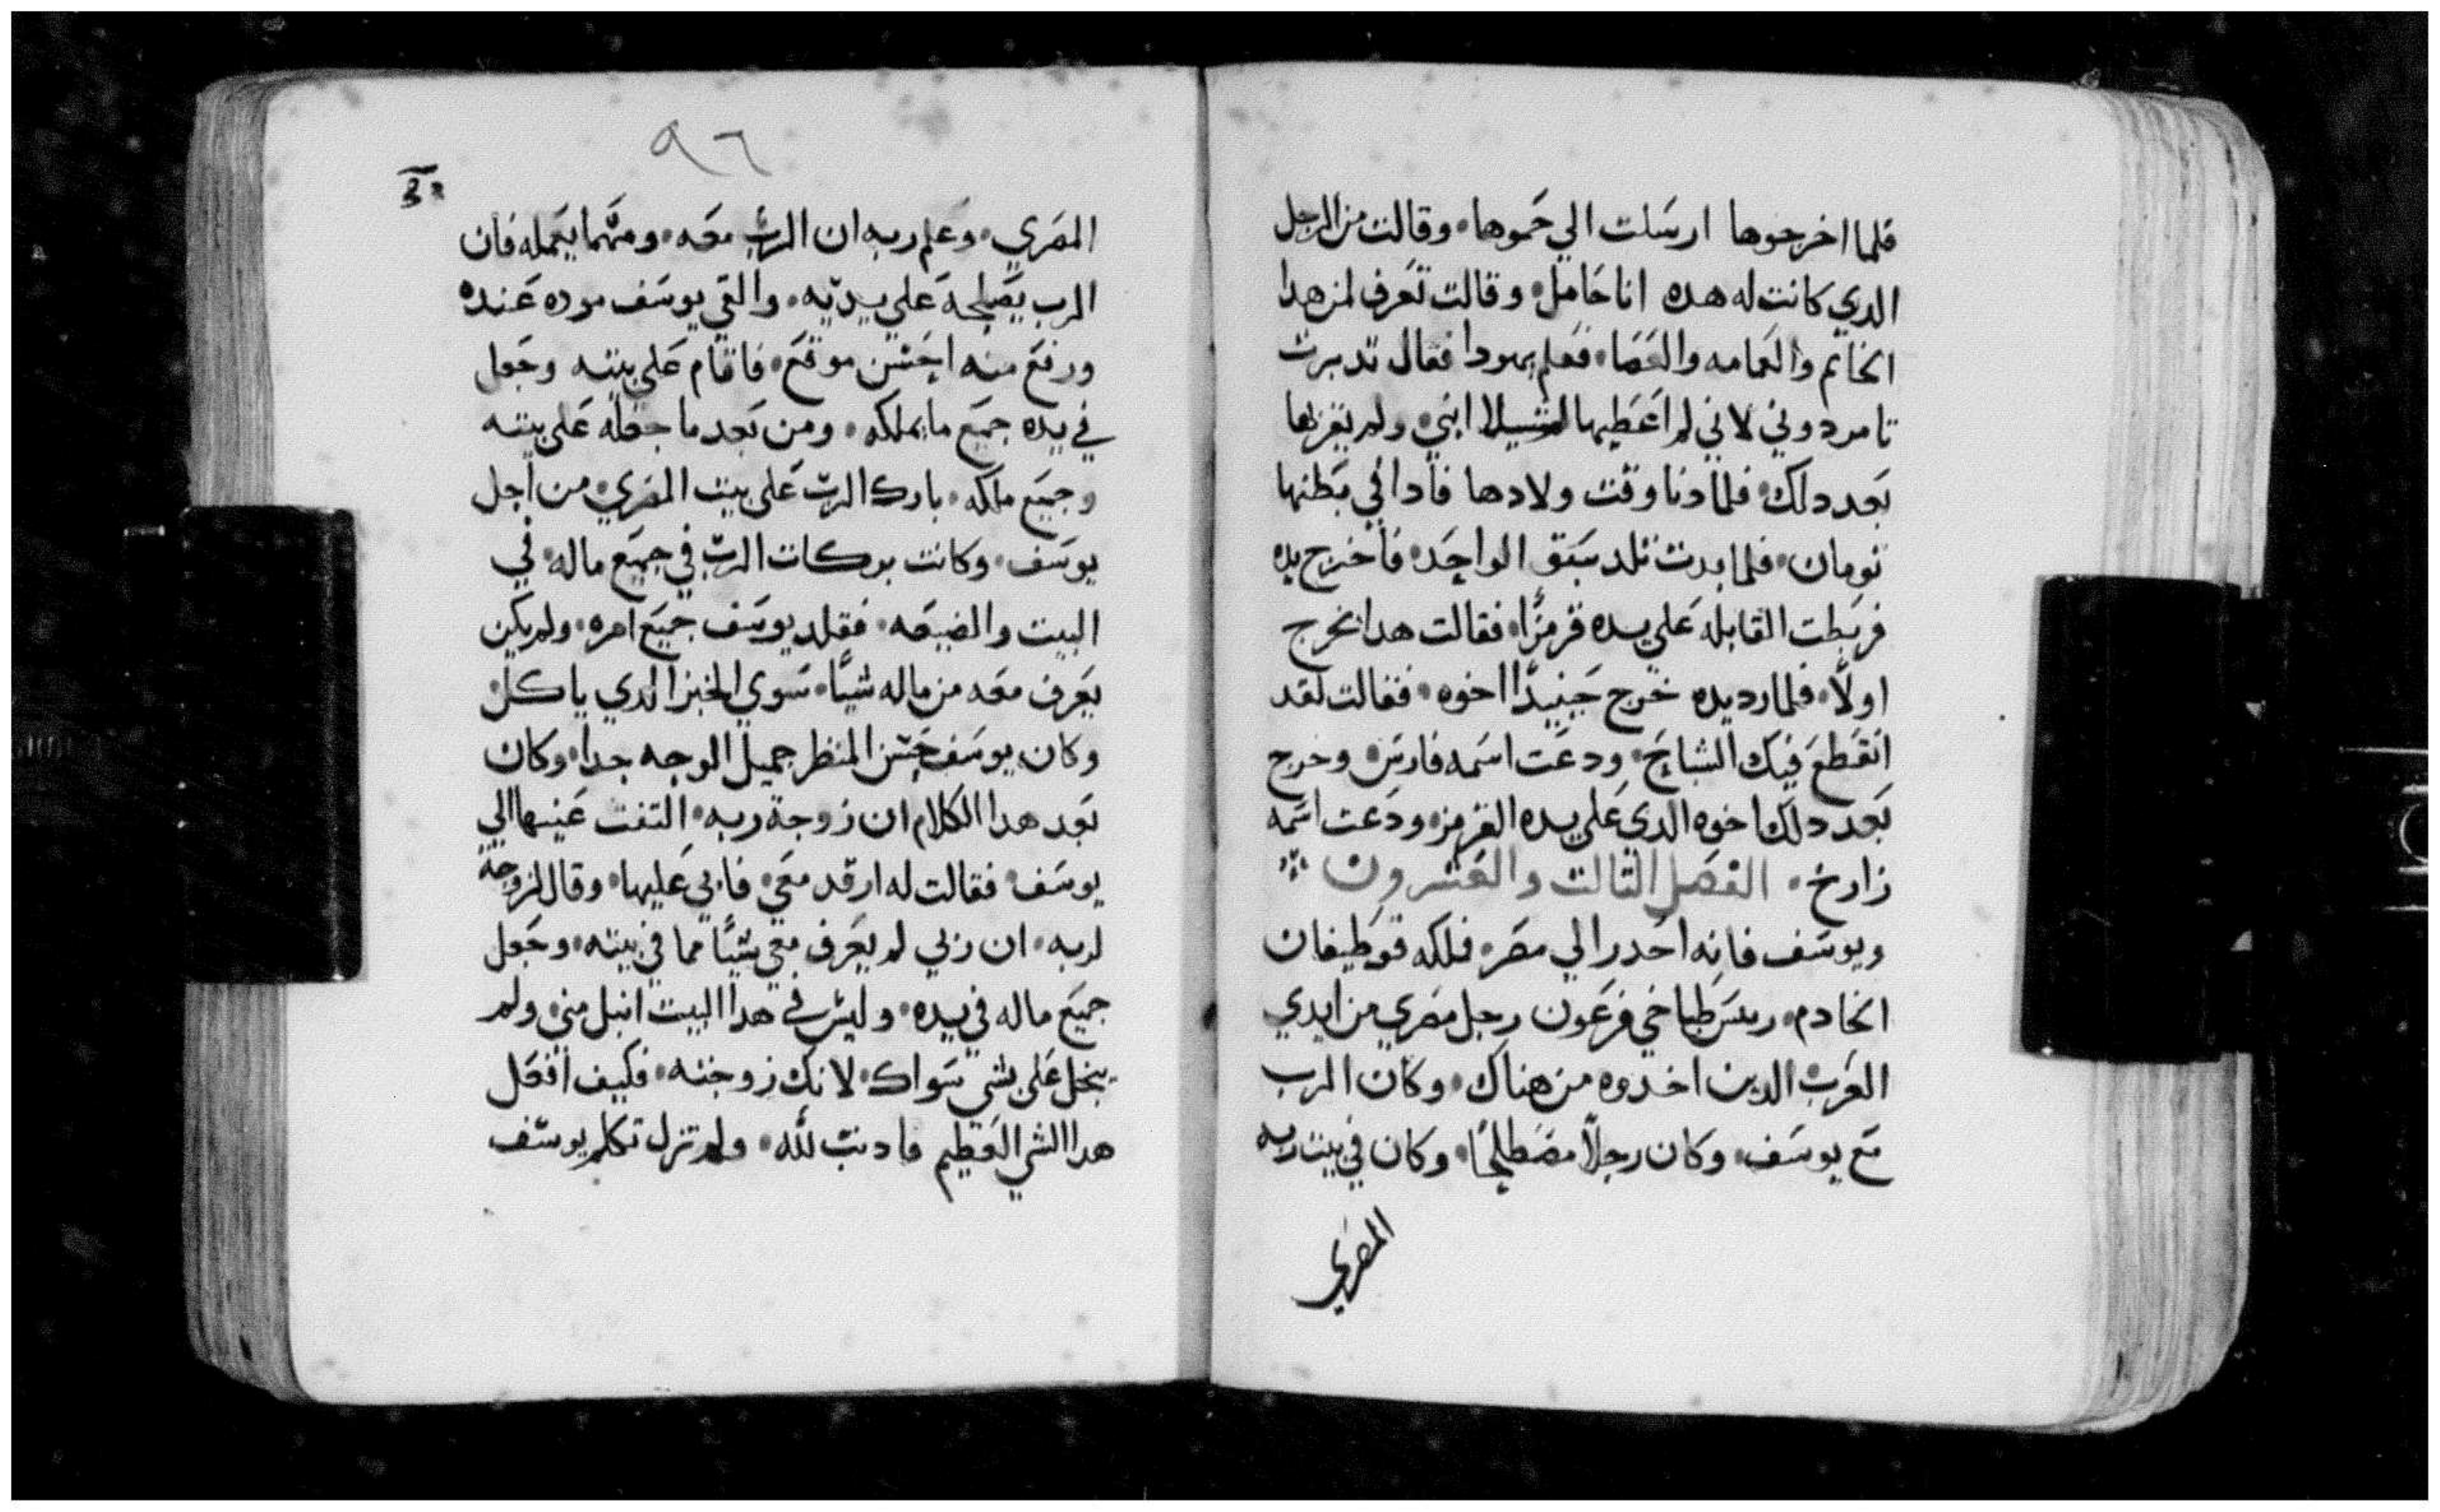 فلما اخرجوها ارسلت الي حموها وقالت من الرجل
الدي كانت له هده انا حامل وقالت تعرف لمن هدا
الخاتم والعمامه والعصا فعلم يهودا فقال تدبرت
تامر دوني لاني لم اعطيها لشيلا ابني ولم يقربها
بعد دلك فلما دنا وقت ولادها فادا في بطنها
تومان فلما بدت تلد سبق الواحد فاخرج يده
فربطت القابله علي يده قرمزًا فقالت هدا يخرج
اولًا فلما رد يده خرج حينيدًا اخوه فقالت لقد
انقطع فيك السياج ودعت اسمه فارس وخرج
بعد دلك اخوه الدي علي يده القرمز ودعت اسمه
زارخ الفصل التالت والعشرون
ويوسف فانه احدر الي مصر فملكه قوطيفان
الخادم ريس طباخي فرعون رجل مصري من ايدي
العرب الدين اخدوه من هناك وكان الرب
مع يوسف وكان رجلًا مصطلحًا وكان في بيت ربه
المصري
٩٦
المصري وعلم ربه ان الرب معه ومهما يعمله فان
الرب يصلحه علي يديه والقي يوسف موده عنده
ورفع منه احسن موقع فاقام علي بيته وجعل
في يده جميع ما يملكه ومن بعد ما جعله علي بيته
وجميع ملكه بارك الرب علي بيت المصري من اجل
يوسف وكانت بركات الرب في جميع ماله في
البيت والضيعه فقلد يوسف جميع امره ولم يكن
يعرف معه من ماله شيًا سوي الخبز الدي ياكل
وكان يوسف حسن المنظر جميل الوجه جدا وكان
بعد هدا الكلام ان زوجة ربه التفت عينها الي
يوسف فقالت له ارقد معي فابي عليها وقال لزوجة
لربه ان ربي لم يعرف معي شيًا مما في بيته وجعل
جميع ماله في يده وليس في هدا البيت انبل مني ولم
يبخل علي بشي سواك لانك زوجته فكيف افعل
هدا الشي العظيم فادنب لله ولم تزل تكلم يوسف